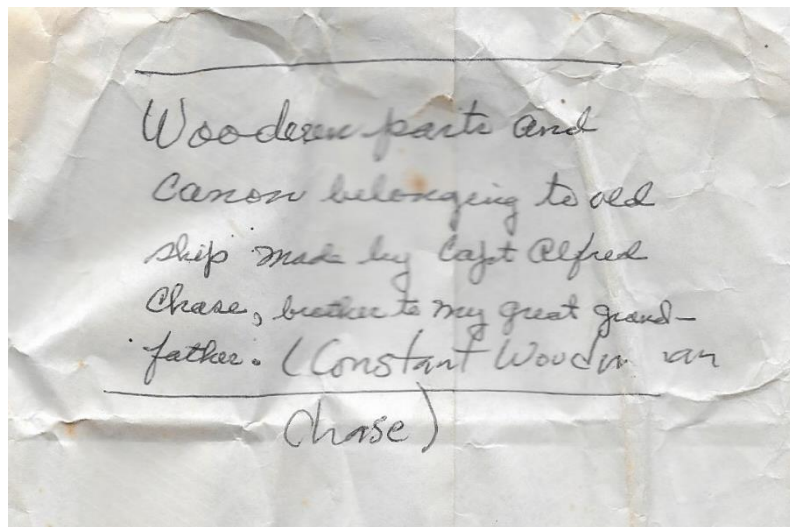 Wooden parts and
Canon belonging to old
ship made by Capt Alfred
Chase, brother to my great grand-
father. (Constant Woodman
Chase)